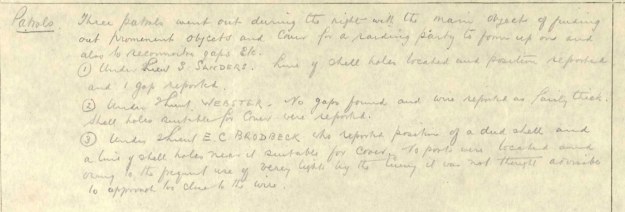 Patrols Three patrols went out during the night with the main objects of finding
out Prominent objects and Cover for a raiding party to form up on and
also to reconnoitre gaps Etc.
① Under Lieut S. SANDERS. Line of shell holes located and position reported
and 1 gap reported.
② Under Lieut WEBSTER. No gaps found and wire reported as fairly thick.
Shell holes suitable for Cover were reported.
③ Under Lieut E.C. BRODBECK who reported position of a dud shell and
a line of shell holes near it suitable for cover. No posts were located and
owing to the frequent use of Verey lights by the Enemy it was not thought advisable
to approach too close to the wire.